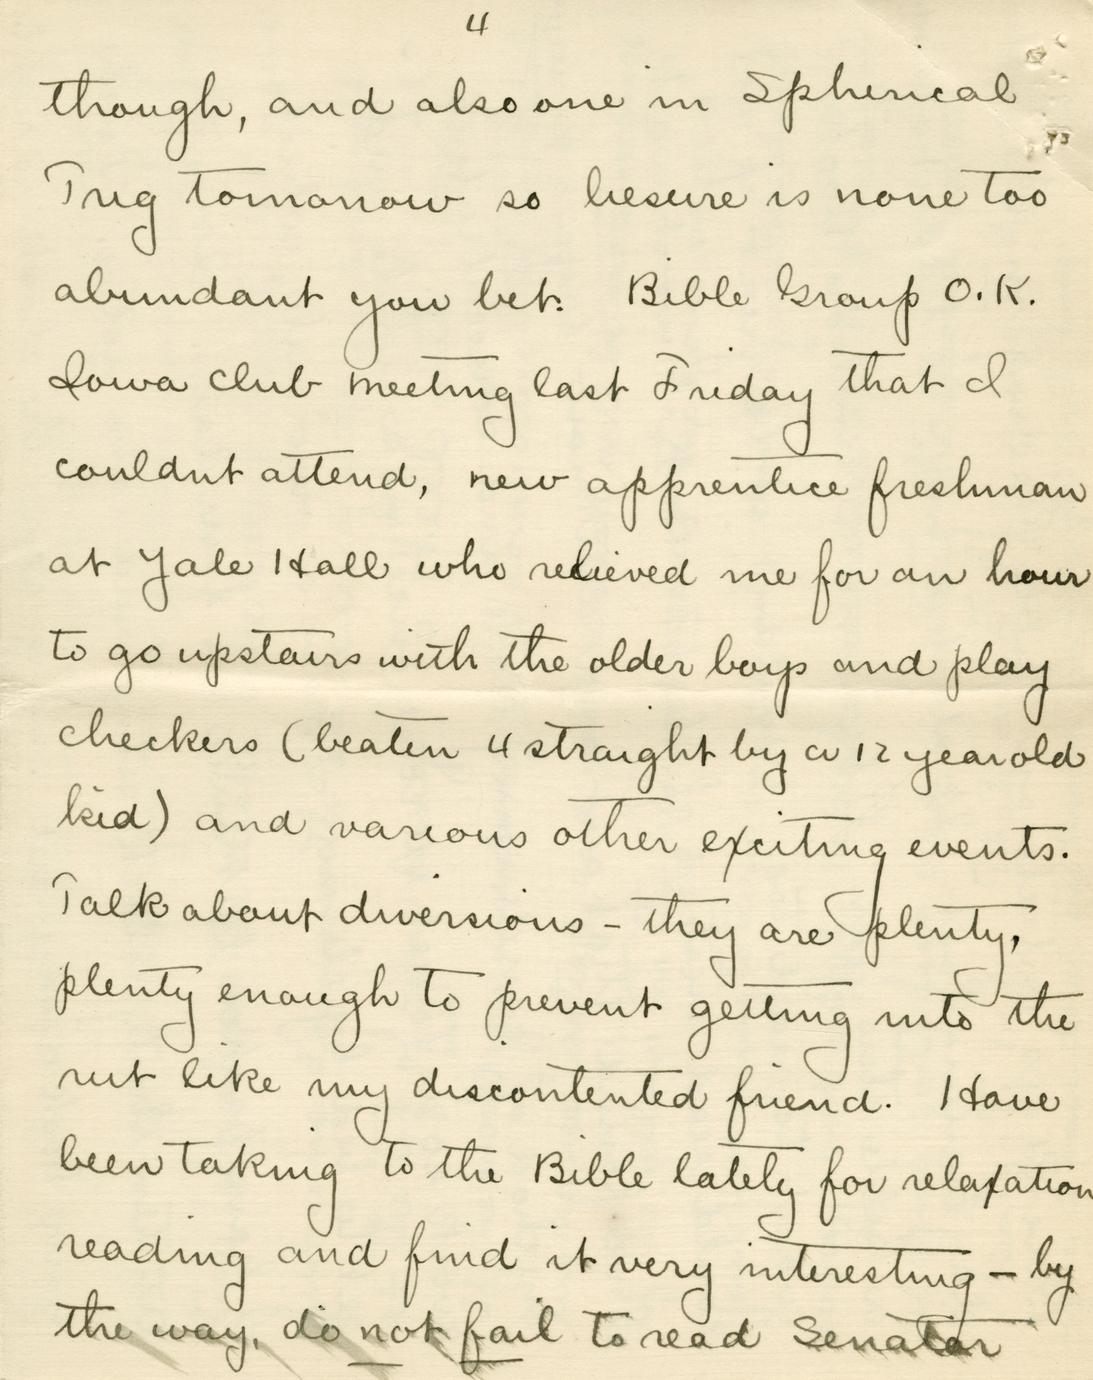 4
though, and also one in Spherical
Trig tomorrow so liesure is none too
abundant you bet. Bible Group O.K.
Iowa club meeting last Friday that I
couldnt attend, new apprentice freshman
at Yale Hall who relieved me for an hour
to go upstairs with the older boys and play
checkers (beaten 4 straight by a 12 year old
kid) and various other exciting events.
Talk about diversions - they are plenty,
plenty enough to prevent getting into the
rut like my discontented friend. Have
been taking to the Bible lately for relaxation
reading and find it very interesting - by
the way, do not fail to read Senator